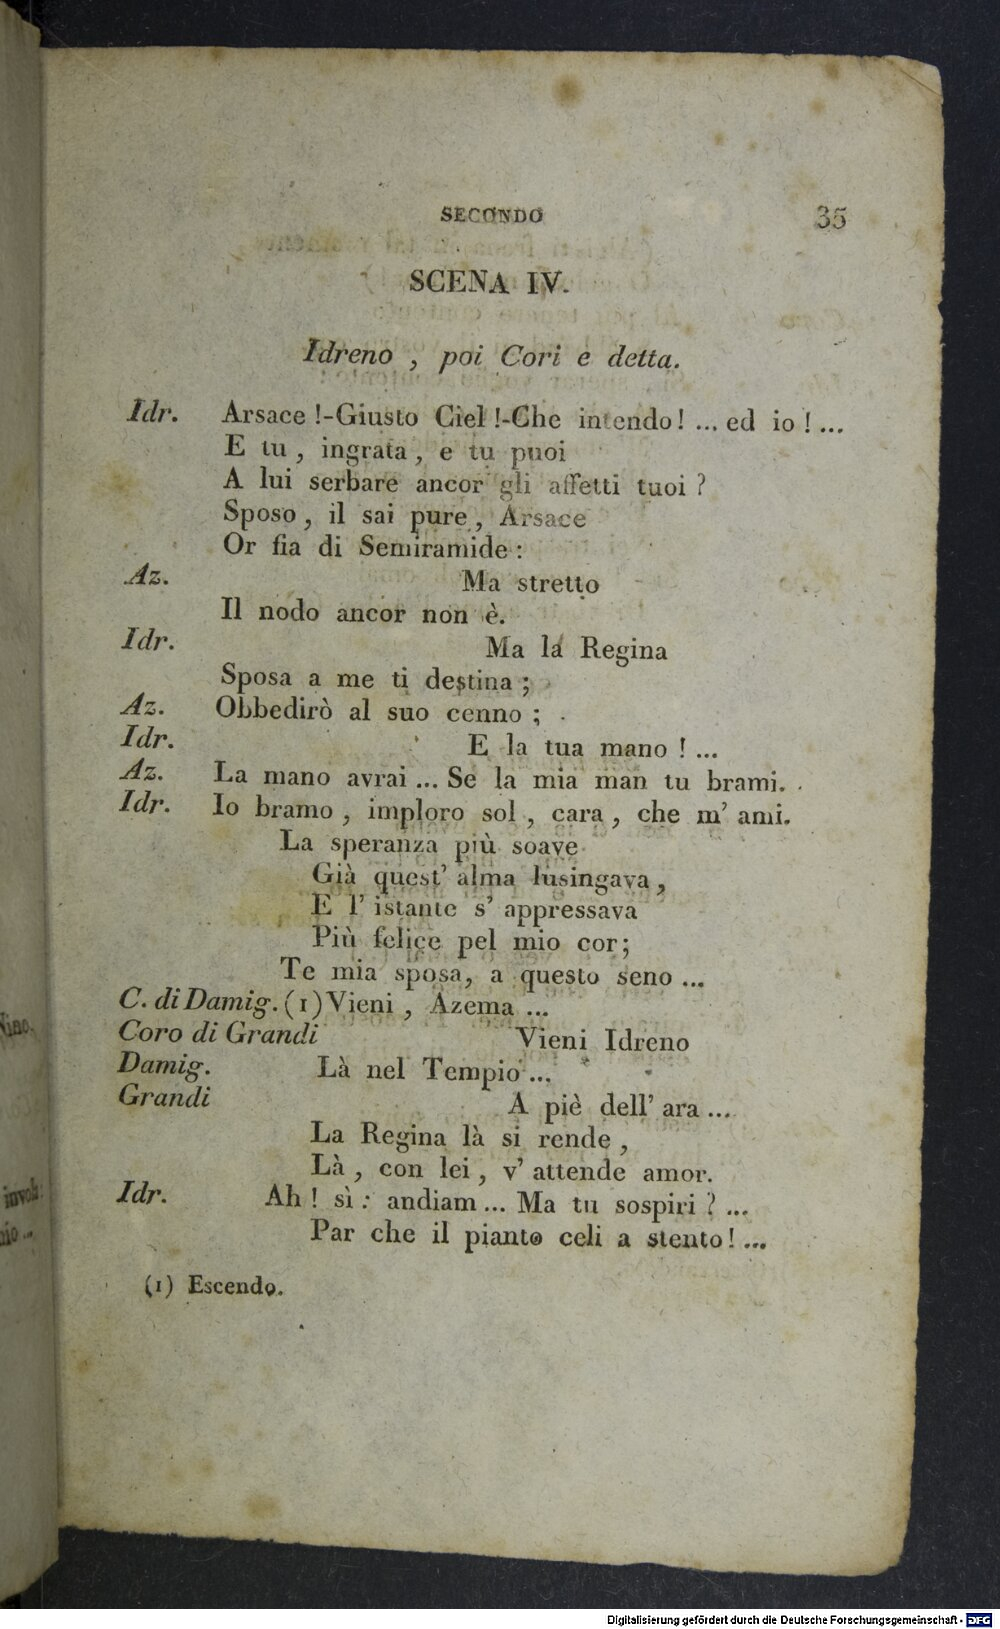 SECONDO 35
SCENA IV.
Idreno , poi Cori e detta.
Idr. Arsace !-Giusto Ciel !-Che intendo! ... ed io ! ...
E tu , ingrata , e tu puoi
A lui serbare ancor gli affetti tuoi ?
Sposo , il sai pure , Arsace
Or fia di Semiramide :
Az. Ma stretto
Il nodo ancor non è.
Idr. Ma la Regina
Sposa a me ti destina ;
Az. Obbedirò al suo cenno ;
Idr. E la tua mano ! ...
Az. La mano avrai ... Se la mia man tu brami.
Idr. Io bramo , imploro sol , cara , che m' ami.
La speranza più soave
Già quest' alma lusingava ,
E l' istante s' appressava
Più felice pel mio cor ;
Te mia sposa, a questo seno ...
C. di Damig. (1) Vieni , Azema ...
Coro di Grandi Vieni Idreno
Damig. Là nel Tempio ...
Grandi A piè dell' ara ...
La Regina là si rende ,
Là , con lei , v' attende amor.
Idr. Ah ! sì : andiam ... Ma tu sospiri ? ...
Par che il pianto celi a stento ! ...
(1) Escendo.
Nino.
Digitalisierung gefördert durch die Deutsche Forschungsgemeinschaft - DFG